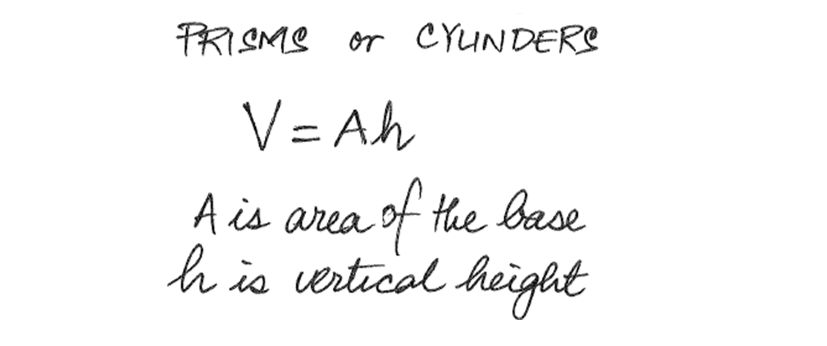 PRISMS or CYLINDERS
V = Ah
A is area of the base
h is vertical height